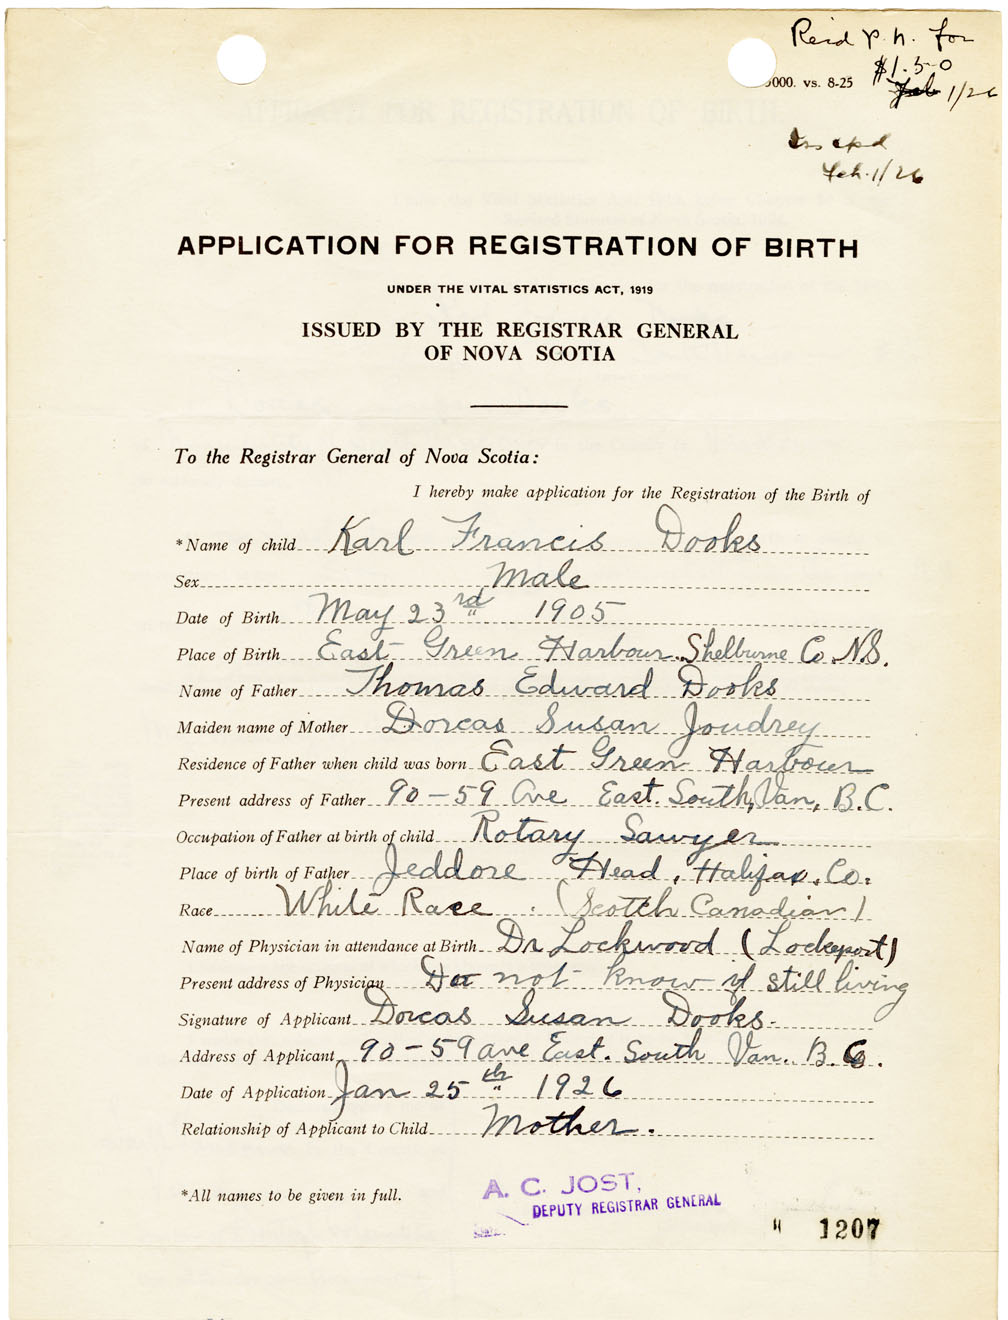 Rec'd P. N. for
$1.50
000. vs. 8-25
Feb 1/26
Feb. 1/26
APPLICATION FOR REGISTRATION OF BIRTH
UNDER THE VITAL STATISTICS ACT, 1919
ISSUED BY THE REGISTRAR GENERAL
OF NOVA SCOTIA
To the Registrar General of Nova Scotia:
I hereby make application for the Registration of the Birth of
*Name of child Karl Francis Dooks
Sex Male
Date of Birth May 23rd 1905
Place of Birth East Green Harbour. Shelburne Co. N.S.
Name of Father Thomas Edward Dooks
Maiden name of Mother Dorcas Susan Joudrey
Residence of Father when child was born East Green Harbour
Present address of Father 90-59 Ave East. South, Van, B.C.
Occupation of Father at birth of child Rotary Sawyer
Place of birth of Father Jeddore Head, Halifax. Co.
Race White Race (Scotch Canadian)
Name of Physician in attendance at Birth Dr Lockwood (Lockeport)
Present address of Physician Do not know if still living
Signature of Applicant Dorcas Susan Dooks.
Address of Applicant 90-59 ave East. South Van. B.C.
Date of Application Jan 25th 1926
Relationship of Applicant to Child Mother.
*All names to be given in full.
A. C. JOST,
DEPUTY REGISTRAR GENERAL
" 1207